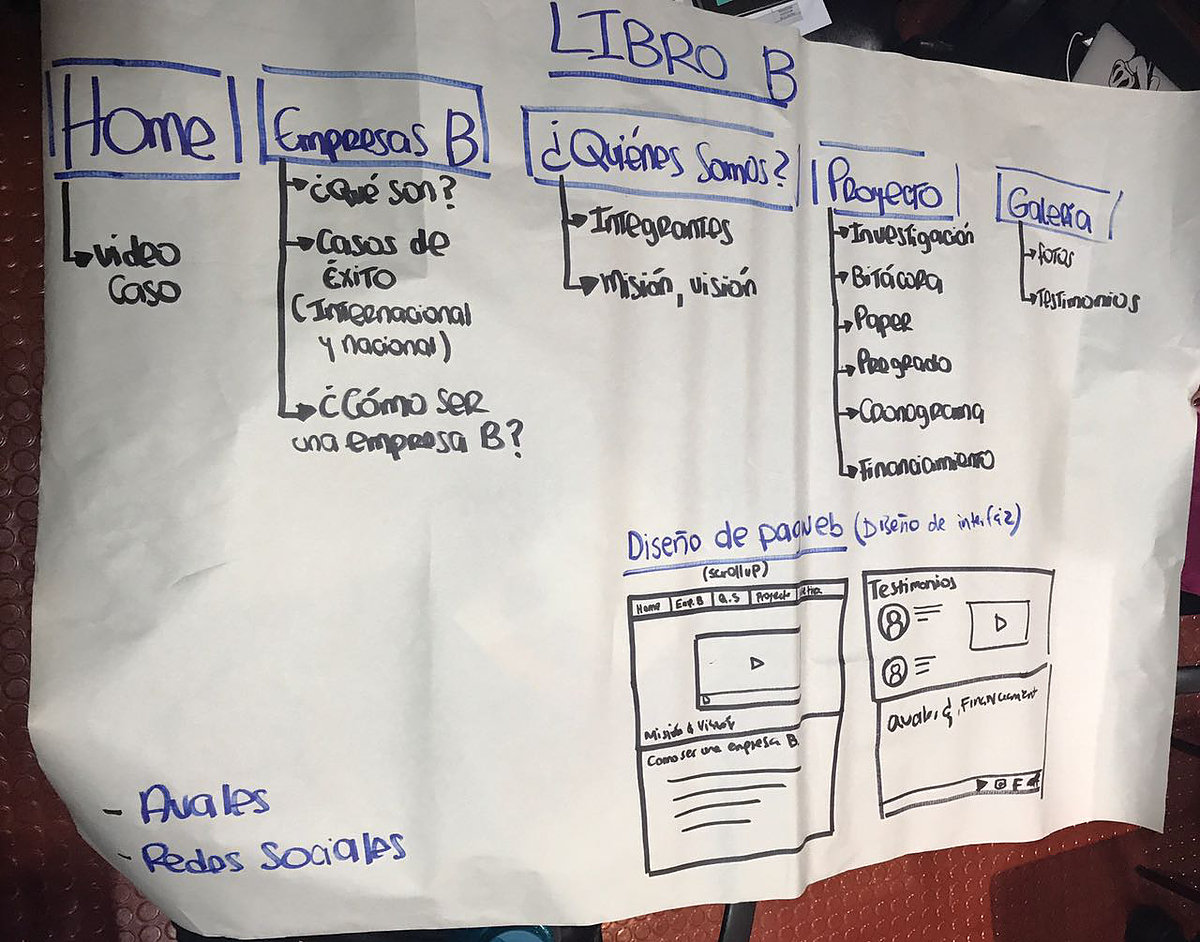 LIBRO B
Home
video
Caso
Empresas B
¿Qué son?
Casos de
Éxito
(Internacional
y nacional)
¿Cómo ser
una empresa B?
¿Quiénes Somos?
Integrantes
Misión, visión
Proyecto
Investigación
Bitácora
Paper
Pregrado
Cronograma
Financiamiento
Galería
fotos
Testimonios
Diseño de pagweb (Diseño de interfáz)
(scrollup)
Home Emp. B Q.S Proyecto
Misión & Visión
Como ser una empresa B.
Testimonios
- Avales
- Redes Sociales